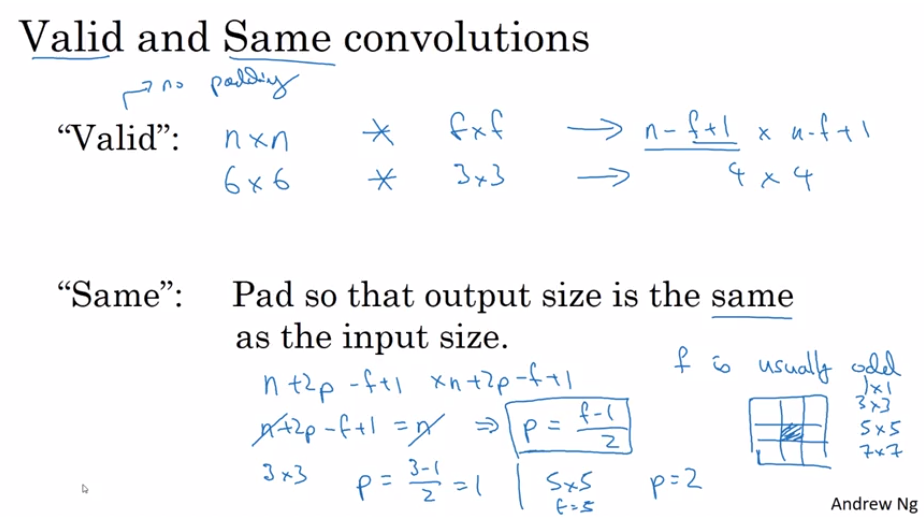 Valid and Same convolutions
→ no padding
“Valid”: n×n * f×f → n-f+1 × n-f+1
6×6 * 3×3 → 4 × 4
“Same”: Pad so that output size is the same
as the input size.
n+2p-f+1 ×n+2p-f+1
n+2p-f+1 = n ⇒ p = f-1/2
3×3 p = 3-1/2 = 1 | 5×5 f=5 p=2
f is usually odd
1×1
3×3
5×5
7×7
Andrew Ng